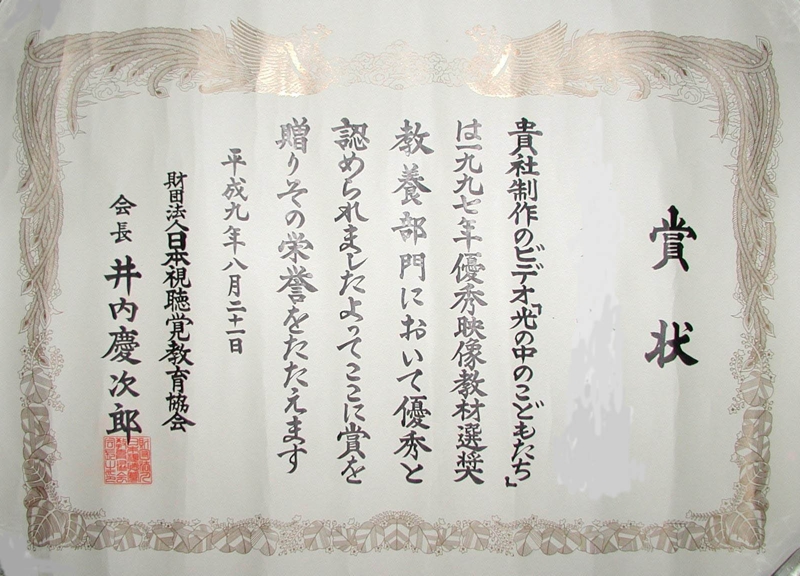 賞状
貴社制作のビデオ「光の中のこどもたち」
は一九九七年優秀映像教材選奨
教養部門において優秀と
認められましたよってここに賞を
贈りその栄誉をたたえます
平成九年八月二十一日
財団法人日本視聴覚教育協会
会長 井内慶次郎